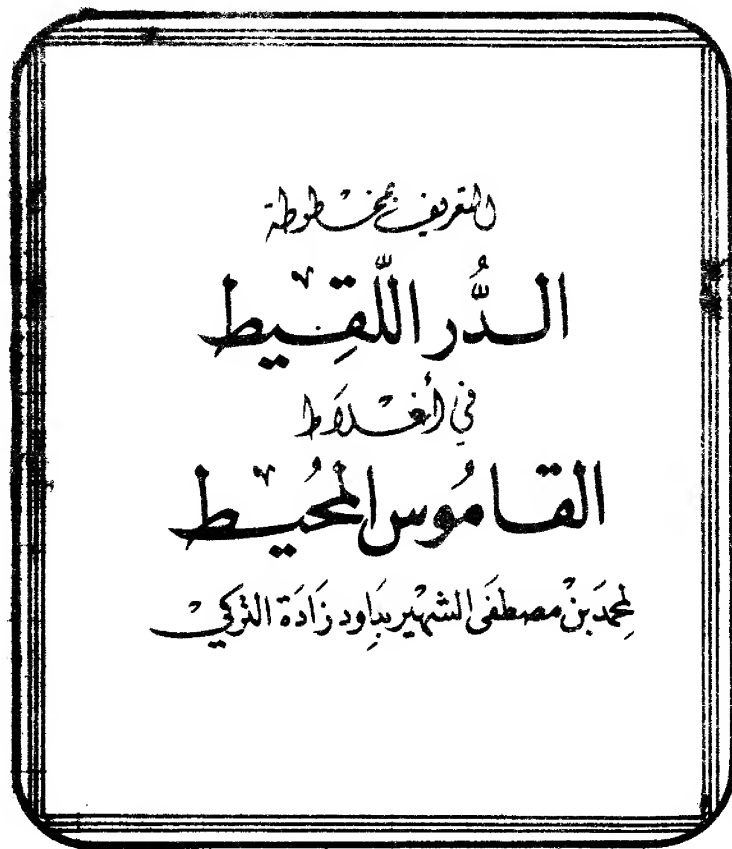 التعريف بمخطوطة
الدُّر اللّقِيط
في أغلَاط
القامُوس المحُيط
لمحمدَ بنْ مصطفَى الشهِير بدِاود زَادَة التركي